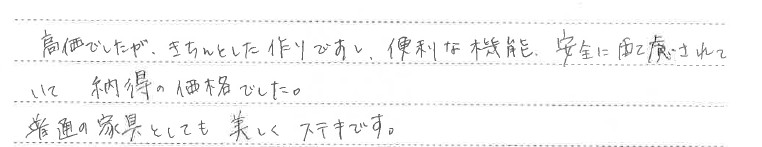 高価でしたが、きちんとした作りですし、便利な機能、安全に配慮されて
いて 納得の価格でした。
普通の家具としても 美しく ステキです。